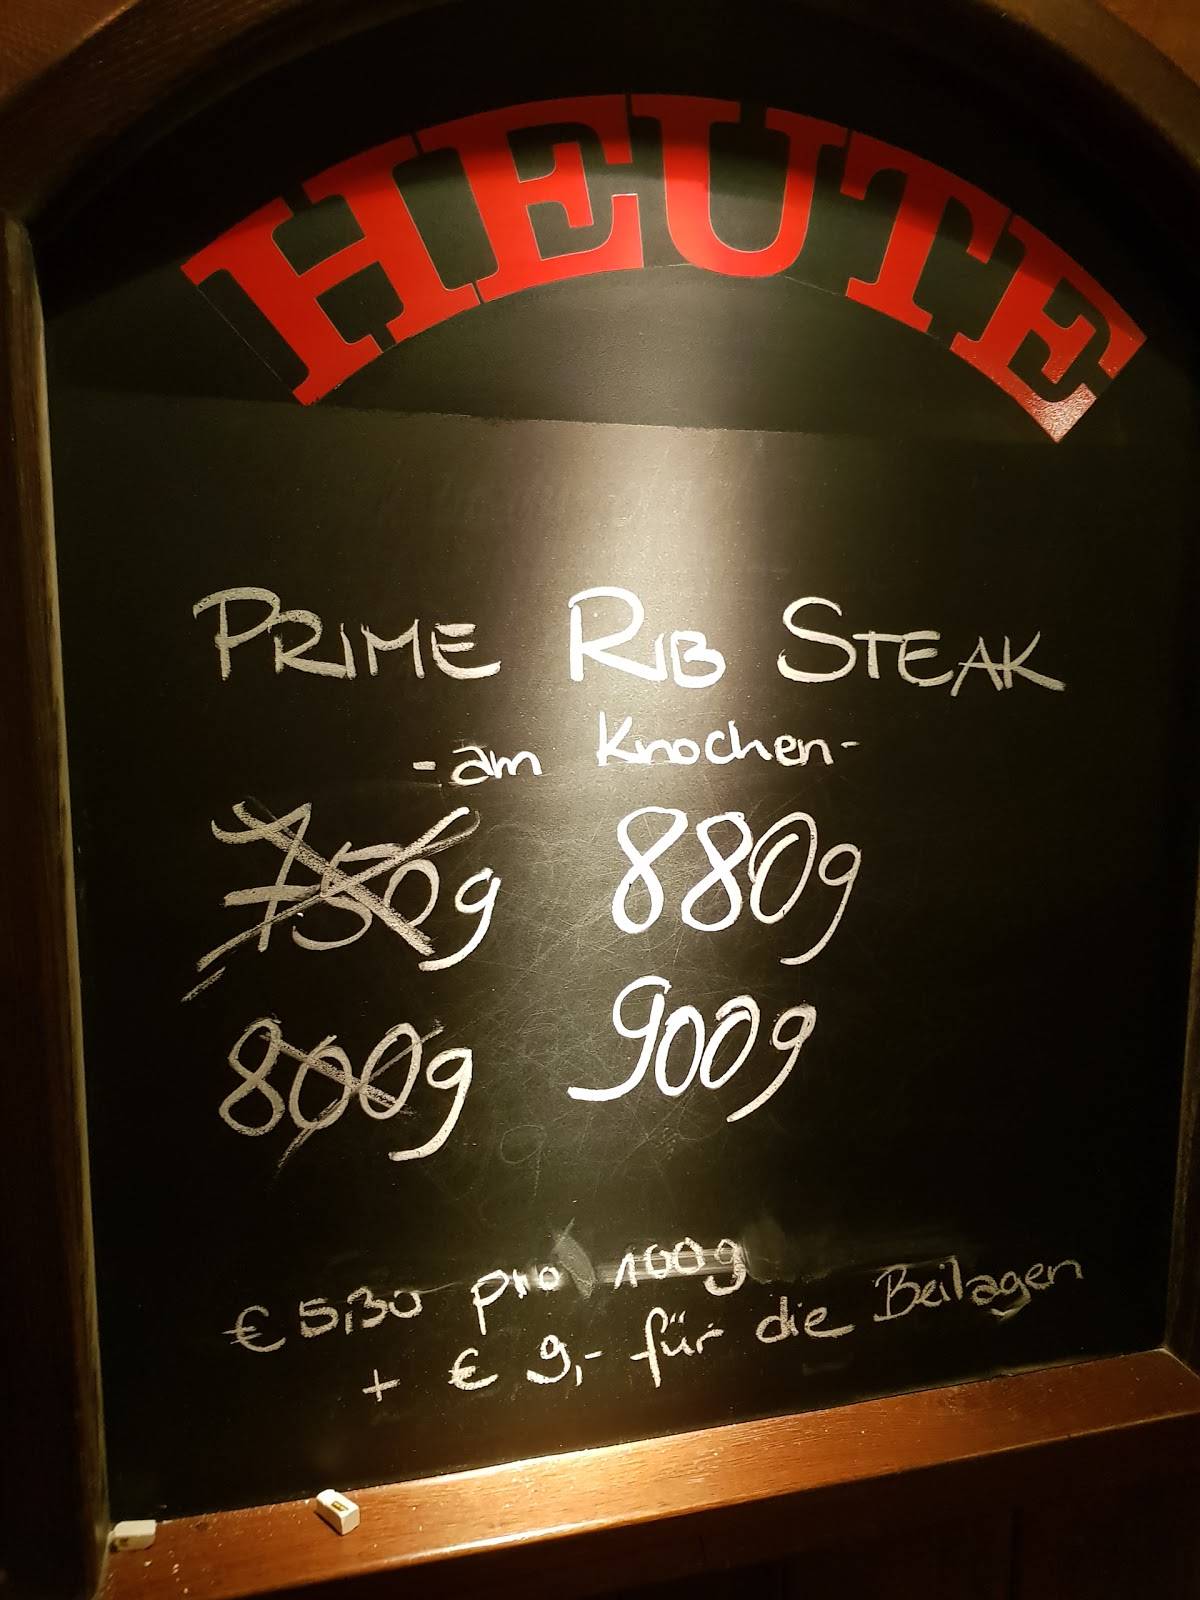 HEUTE
PRIME RIB STEAK
- am Knochen -
750g 880g
800g 900g
€ 5,30 pro 100g
+ € 9,- für die Beilagen